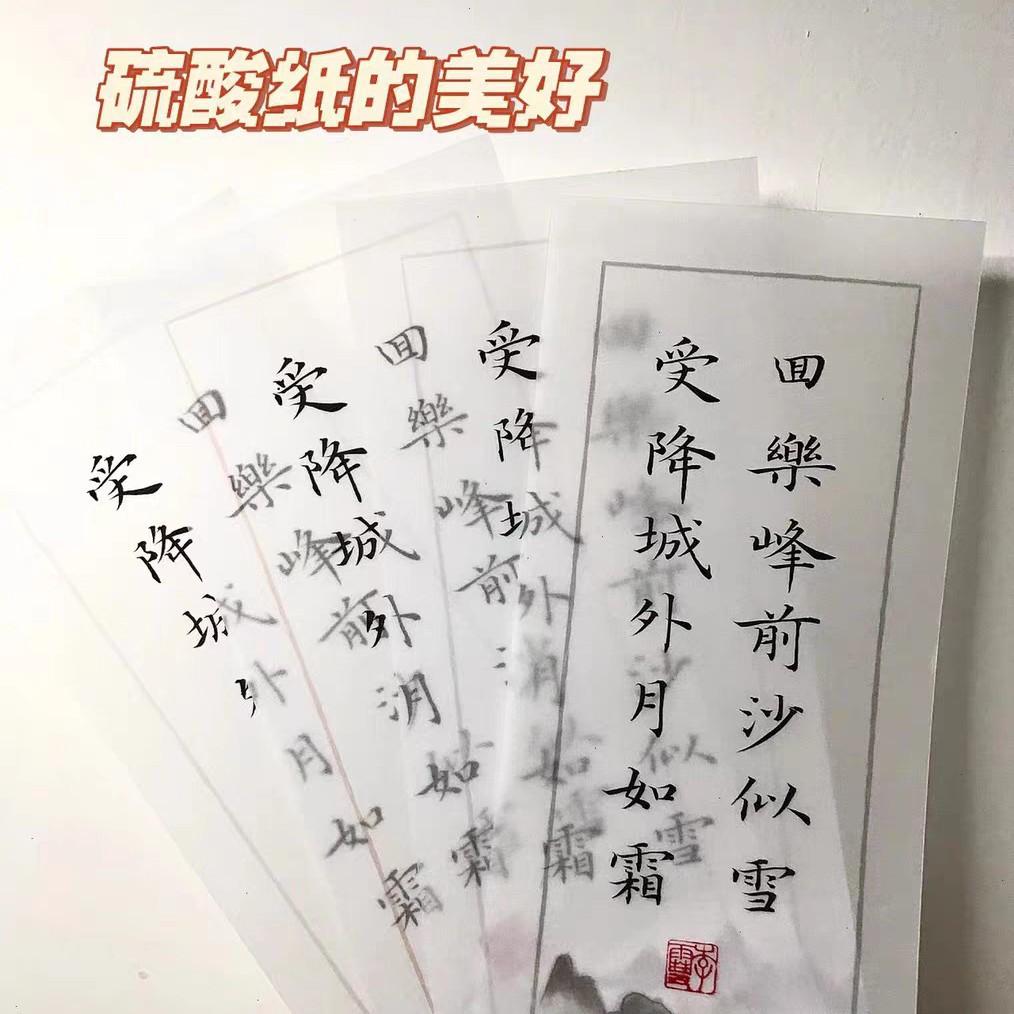 硫酸纸的美好
囬樂峰前沙似雪
受降城外月如霜
囬樂峰前沙似雪
受降城外月如霜
囬樂峰前
受降城外月如霜
囬樂峰前
受降城外月如霜